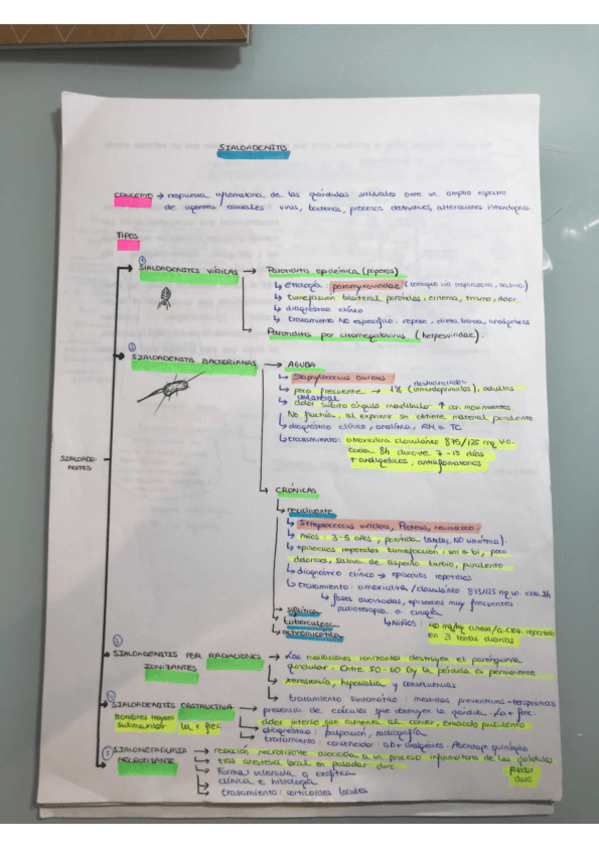 SIALOADENITIS
CONCEPTO → respuesta inflamatoria de las glándulas salivales ante un amplio espectro
de agentes causales: virus, bacterias, procesos obstructivos, alteraciones inmunológicas
TIPOS
① SIALOADENITIS VÍRICAS → Parotiditis epidémica (paperas)
↳ etiología: paramyxoviridae (contagio vía respiratoria, saliva)
↳ tumefacción bilateral parótidas, eritema, trismo, dolor
↳ diagnóstico clínico
↳ tratamiento NO específico: reposo, dieta blanda, analgésicos
Parotiditis por citomegalovirus (herpesviridae).
② SIALOADENITIS BACTERIANAS → AGUDA
↳ Staphylococcus aureus
deshidratados
↳ poco frecuente → 1% (inmunodeprimidos), adultos
unilateral
↳ dolor súbito ángulo mandibular ↑ con movimientos.
No fluctúa, al exprimir se obtiene material purulento
↳ diagnóstico clínico, analítica, RM o TC
↳ tratamiento: amoxicilina clavulánico 875/125 mg v.o.
cada 8h durante 7-15 días
+ analgésicos, antiinflamatorios
SIALOADE-
NITIS
CRÓNICAS
↳ recidivante
↳ Streptococcus viridans, Proteus, neumococo.
↳ niños: 3-5 años, parótida (ambas, NO simétrica).
↳ episodios repetidos tumefacción: uni o bi, poco
dolorosos, saliva de aspecto turbio, purulento
↳ diagnóstico clínico → episodios repetitivos
↳ tratamiento: amoxicilina/clavulánico 875/125 mg v.o. cada 8h
↳ fases avanzadas, episodios muy frecuentes:
radioterapia o cirugía
↳ sifilítica
↳ Niños: 40 mg/kg amox/a.clav. repartido
en 3 tomas diarias
↳ tuberculosa
↳ actinomicótica
③ SIALOADENITIS POR RADIACIONES
IONIZANTES
→ Las radiaciones ionizantes destruyen el parénquima
glandular. Entre 50-60 Gy la pérdida es permanente
→ xerostomía, hiposialia y consecuencias
↳ tratamiento sintomático: medidas preventivas-terapéuticas
④ SIALOADENITIS OBSTRUCTIVA → presencia de cálculos que obstruyen la glándula. La + frec.
Hombres mayores
Submaxilar la + frec
dolor intenso que aumenta al comer, exudado purulento
diagnóstico: palpación, radiografía
tratamiento: conservador: ab + analgésicos. Abordaje quirúrgico
⑤ SIALOMETAPLASIA
NECROTIZANTE
→ reacción necrotizante asociada a un proceso inflamatorio de las glándulas
→ tras anestesia local en paladar duro
paladar
duro
→ Forma: ulcerada o exofítica
→ clínica e histología
→ tratamiento: corticoides locales